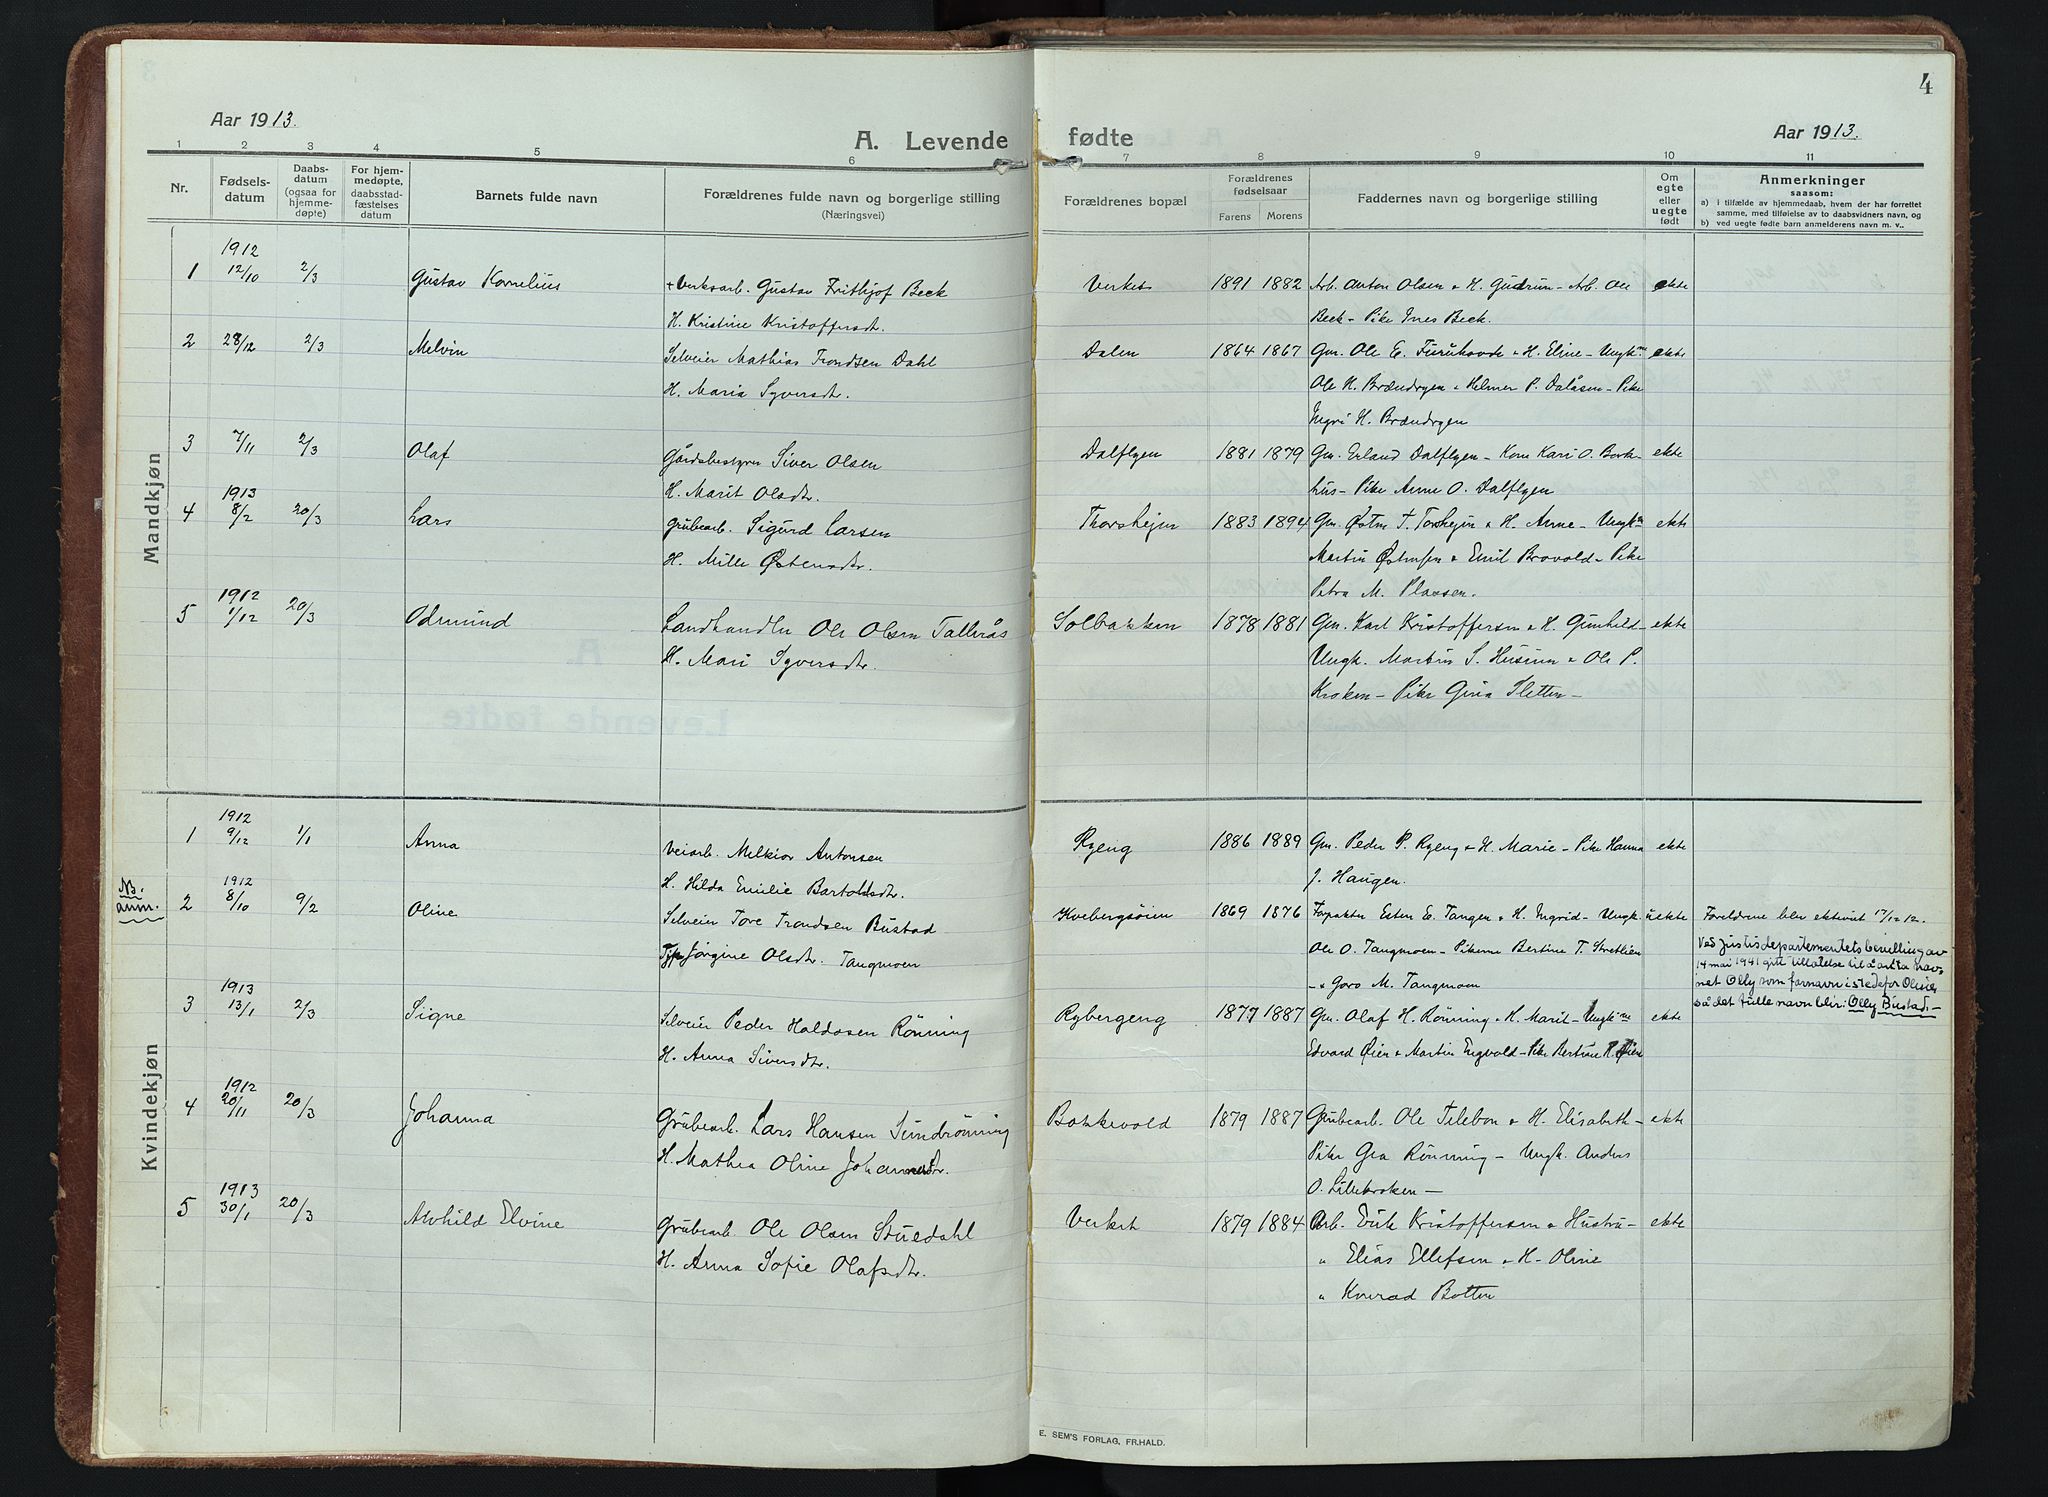 4
Aar 1913.
A. Levende fødte
Aar 1913.
1 2 3 4 5 6 7 8 9 10 11
Nr.
Fødsels-
datum
Daabs-
datum
(ogsaa for
hjemme-
døpte)
For hjem-
medøpte,
daabsstad-
fæstelses
datum
Barnets fulde navn
Forældrenes fulde navn og borgerlige stilling
(Næringsvei)
Forældrenes bopæl
Forældrenes
fødselsaar
Farens Morens
Faddernes navn og borgerlige stilling
Om
egte
eller
uegte
født
Anmerkninger
saasom:
a) i tilfælde av hjemmedaab, hvem der har forrettet
samme, med tilføielse av to daabsvidners navn, og
b) ved uegte fødte barn anmelderens navn m. v..
Mandkjøn
1912
1 12/10 2/3 Gustav Kornelius + Verksarb. Gustav Frithjof Beck Verket 1891 1882 Arb. Anton Olsen & H. Gudrun – Arb. Ole ekte
H. Kristine Kristoffersdt. Beck – Pike Ines Beck.
2 28/12 2/3 Melvin Selveier Mathias Trondsen Dahl Dalen 1864 1867 Gm. Ole E. Furuhovde & H. Eline – Ungkm ekte
H. Maria Syversdtr. Ole H. Brændryen & Helmer P. Dalåsen – Pike
Ingri H. Brændryen
3 7/11 2/3 Olaf Gårdsbestyrer Siver Olsen Dalflyen 1881 1879 Gm. Erland Dalflyen – Kone Kari O. Bork- ekte
H. Marit Olsdtr. hus – Pike Anne O. Dalflyen
1913
4 8/2 20/3 Lars Grubearb. Sigurd Larsen Thorshejm 1883 1894 Gm. Østen T. Torshejm & H. Anne – Ungkm ekte
H. Mille Østensdtr. Martin Østensen & Emil Brovold – Pike
Petra M. Plassen.
1912
5 1/12 20/3 Odmund Landhandler Ole Olsen Tallerås Solbakken 1878 1881 Gm. Karl Kristoffersen & H. Gunhild – ekte
H. Mari Syversdtr. Ungk. Martin S. Husum & Ole P.
Kroken – Pike Gina Sletten –
Kvindekjøn
1912
1 9/12 1/1 Anna Veiarb. Melkior Antonsen Ryeng 1886 1889 Gm. Peder P. Ryeng & H. Marie – Pike Hanna ekte
H. Hilda Emilie Bartoldsdtr. J. Haugen.
NB.
anm.
1912
2 8/10 9/2 Oline Selveier Tore Trondsen Bustad Kvebergsøien 1869 1876 Forpakter Esten E. Tangen & H. Ingrid – Ungk. uekte Foreldrene blev ektviet 17/12 12.
Tjp Jørgine Olsdtr. Tangmoen Ole O. Tangmoen – Pikerne Bertine T. Strætlien
– & Goro M. Tangmoen
Ved Justisdepartementets bevilling av
14 mai 1941 gitt tillatelse til å anta nav-
net Olly som fornavn i stedefor Oline,
så det fulle navn blir: Olly Bustad. –
1913
3 13/1 2/3 Signe Selveier Peder Haldosen Rønning Rybergeng 1877 1887 Gm. Olaf H. Rønning & H. Marit – Ungkm ekte
H. Anna Siversdtr. Edvard Øien & Martin Engvold – Pike Bertine R. Øien
1912
4 20/11 20/3 Johanna Grubearb. Lars Hansen Sundrønning Bakkevold 1879 1887 Grubearb. Ole Tilebon & H. Elisabeth – ekte
H. Mathea Oline Johannesdtr. Pike Gea Rønning – Ungk. Anders
O. Lillekroken –
1913
5 30/1 20/3 Alvhild Elvine Grubearb. Ole Olsen Stuedahl Verket 1879 1884 Arb. Erik Kristoffersen & Hustru – ekte
H. Anna Sofie Olafsdtr. " Elias Ellefsen & H. Oline
" Konrad Botten
E. SEM'S FORLAG, FR.HALD.